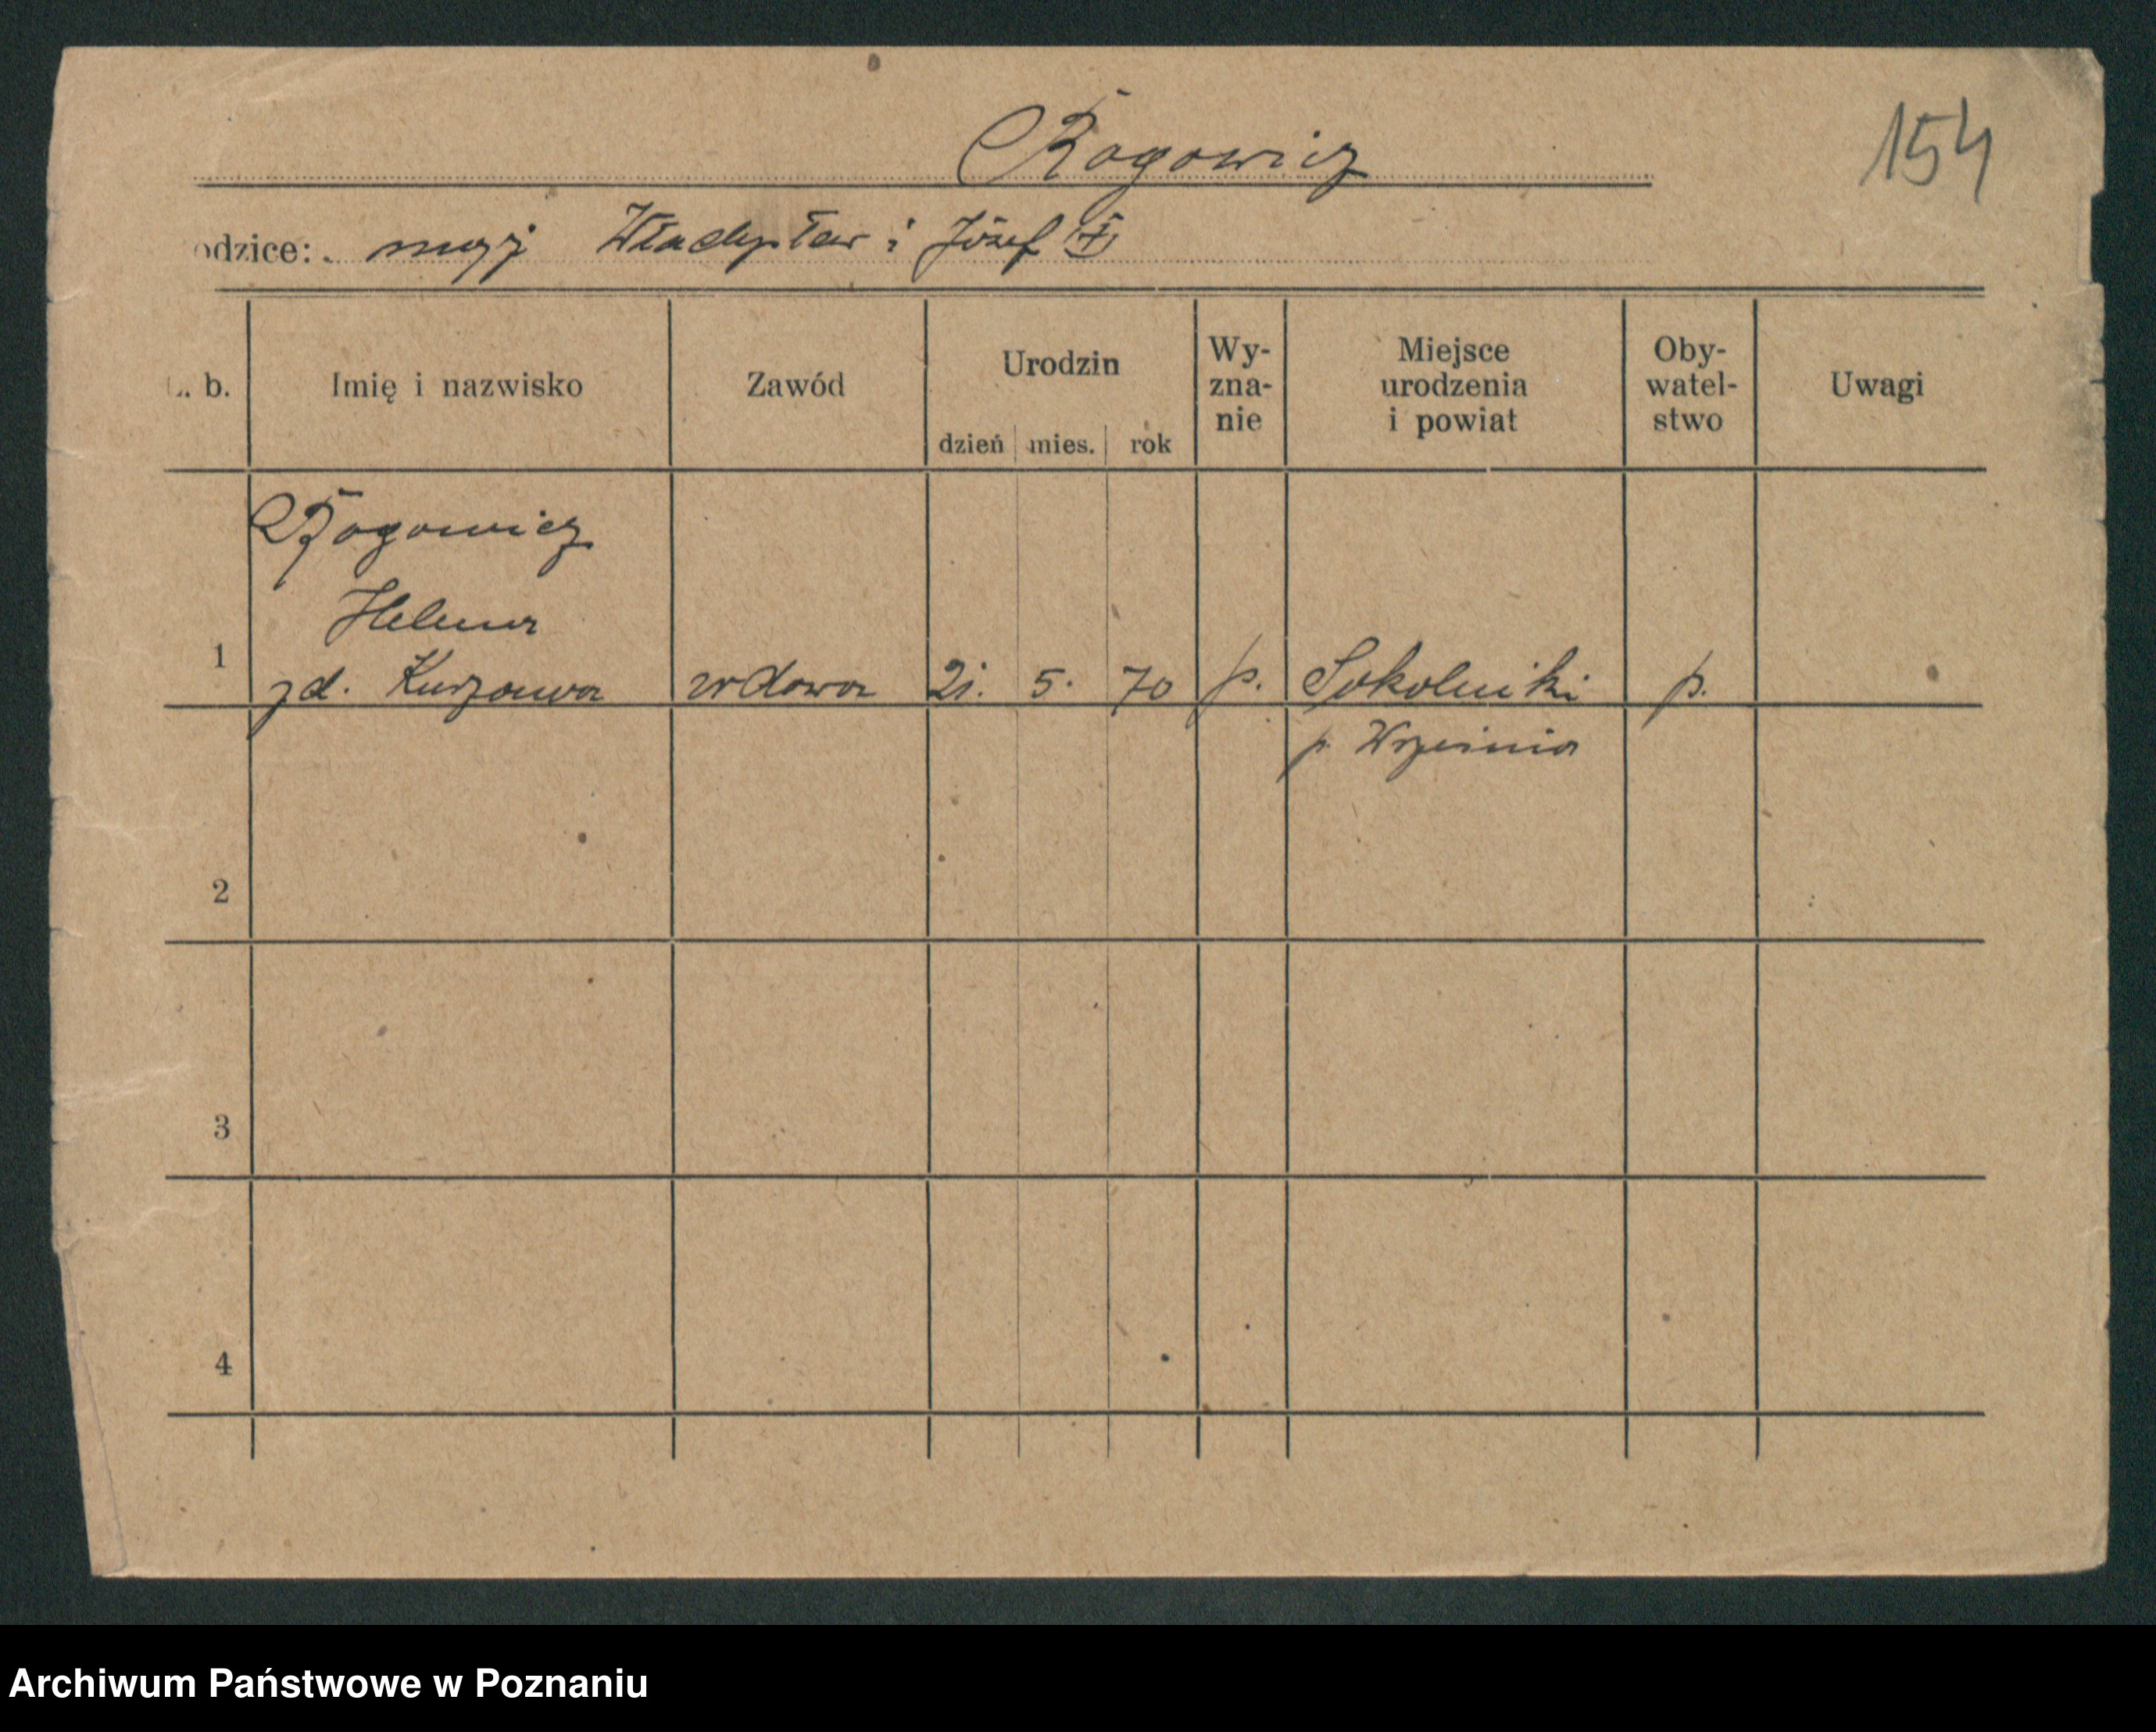 Rogowicz
154
odzice: mąż Władysław i Józef (†)
L. b.
Imię i nazwisko
Zawód
Urodzin
dzień mies. rok
Wy-
zna-
nie
Miejsce
urodzenia
i powiat
Oby-
watel-
stwo
Uwagi
Rogowicz
Helena
1 zd. Kurzawa wdowa 21. 5. 70 p. Sokolniki p.
p. Września
2
3
4
Archiwum Państwowe w Poznaniu